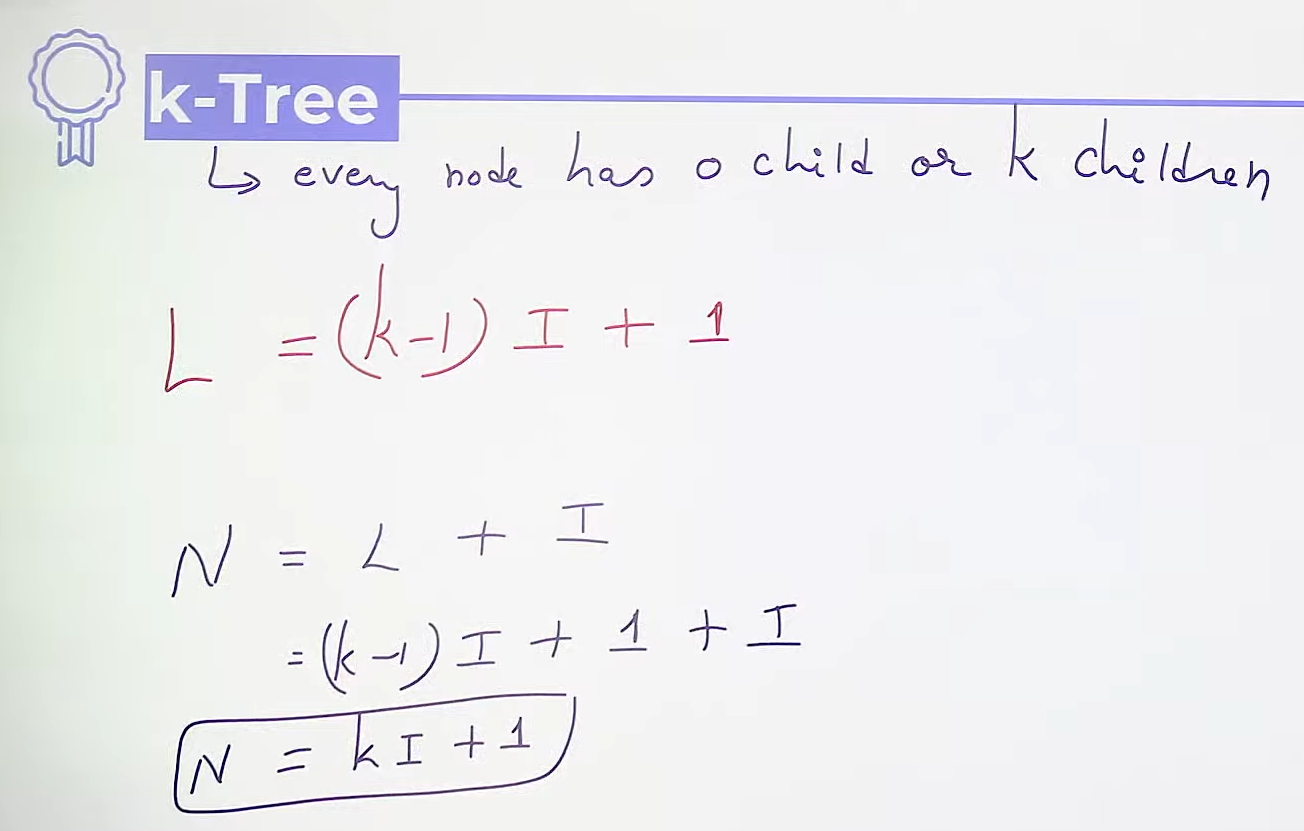 k-Tree
↳ every node has 0 child or k children
L = (k-1) I + 1
N = L + I
= (k-1) I + 1 + I
N = kI + 1